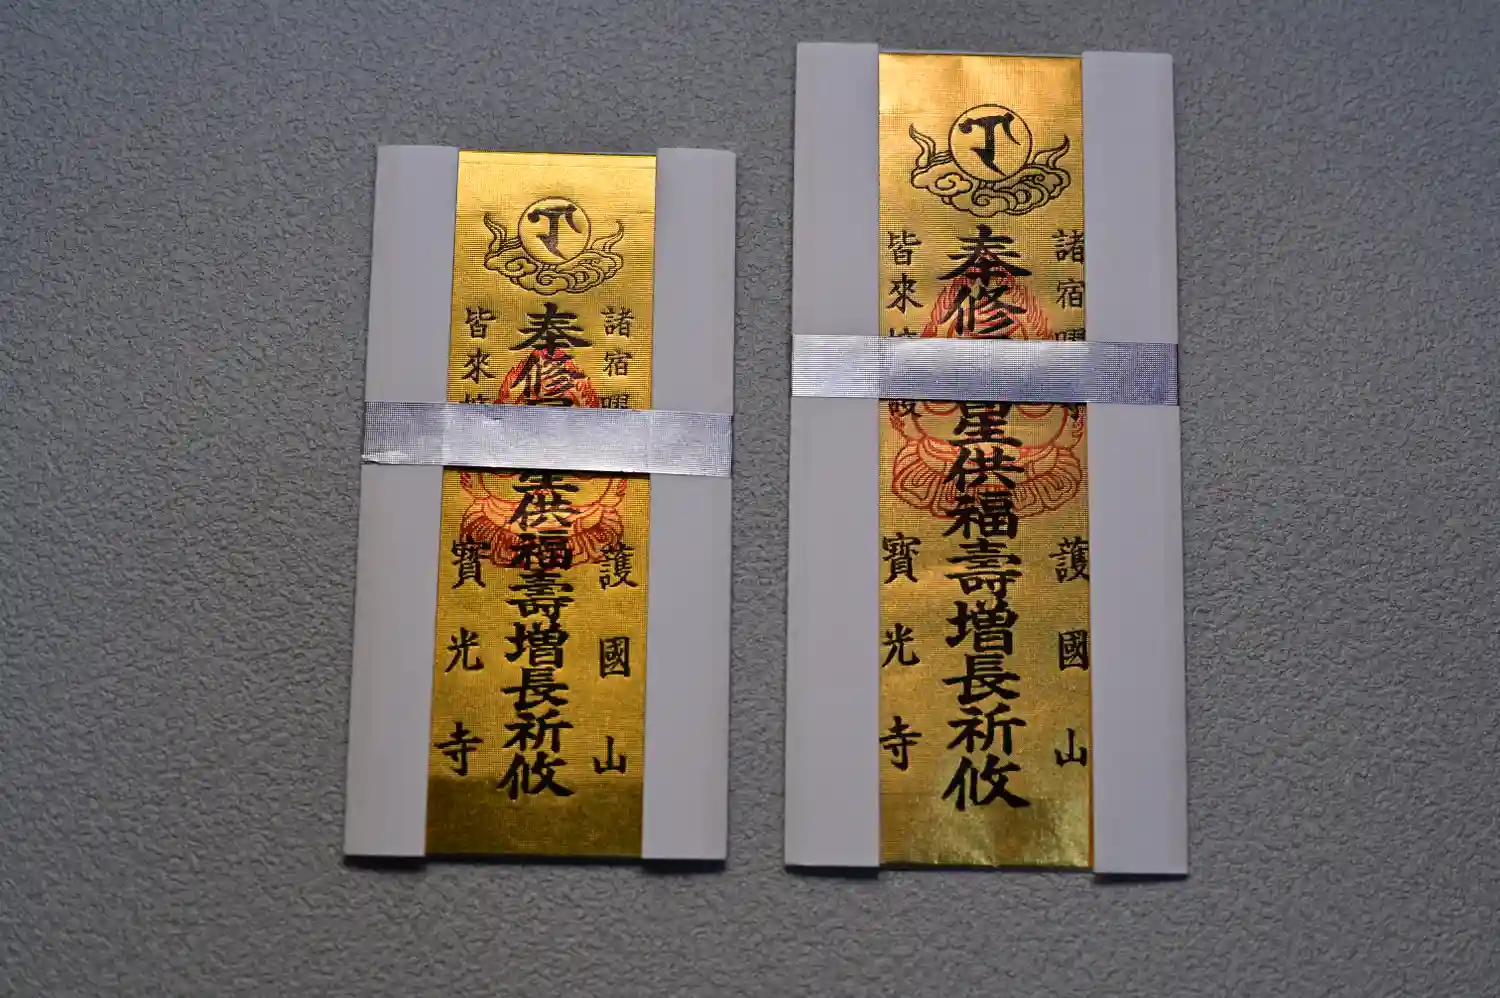 諸宿
護國山
奉修星供福壽増長祈攸
皆來
寶光寺
諸宿
護國山
奉修星供福壽増長祈攸
皆來
寶光寺